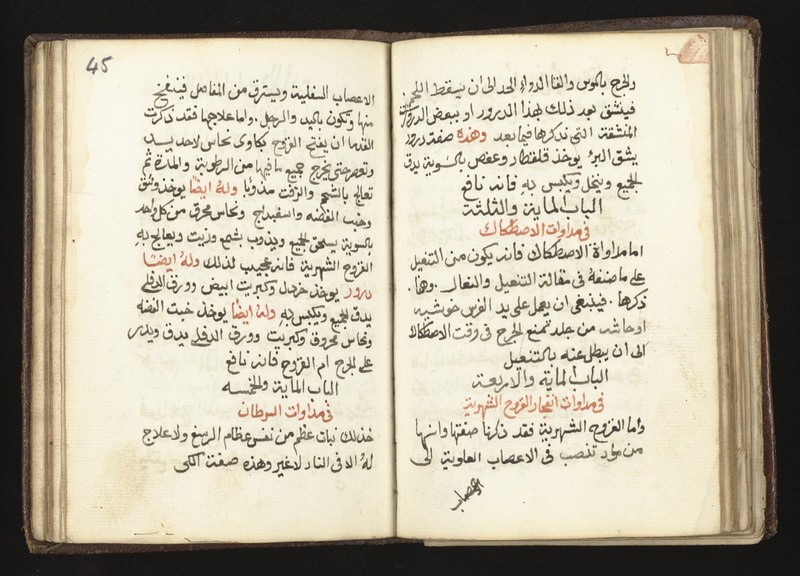 والجرح بالموس والقا الدواء الحد الى ان يسقط اللحم
فينشق بعد ذلك بهذا الدرور او ببعض الدرورات
المنشقة التي نذكرها فيما بعد وهذه صفة درور
يشق البرؤ يوخذ قلقطار وعفص بالسوية يدق
الجميع وينخل ويكبس به فانه نافع
الباب الماية والثلثة
في مداوات الاصطكاك
اما مداواة الاصطكاك فانه يكون من التنعيل
على ما صنفة في مقالة التنعيل والنعال . وها .
ذكرها . فينبغي ان يعمل على يد الفرس خوشيه
او حاشه من جلد تمنع الجرح في وقت الاصطكاك
الى ان يبطل عنه بالتنعيل
الباب الماية والاربعة
في مداوات انفجار القروح الشهرية
واما القروح الشهرية فقد ذكرنا صفتها وانها
من مواد تنصب في الاعصاب العلوية الى
الاعصاب
45
الاعصاب السفلية ويسترق من المفاصل فينفتح
منها وتكون باليد والرجل . واما علاجها فقد ذكرت
القدما ان يفتح القروح بكاوى نحاس لاحديد
وتعصر حتى يخرج جميع ما فيها من الرطوبة والمدة ثم
تعالج بالشحم والزفت مذوبا وله ايضا يوخذ وثق
وخبث الفضه واسفيداج ونحاس محرق من كل واحد
بالسوية يسحق الجميع ويذوب بشحم وزيت ويعالج به
القروح الشهرية فانه عجيب لذلك وله ايضا
درور يوخذ خردل وكبريت ابيض وورق الدفلى
يدق الجميع ويكبس به وله ايضا يوخذ خبث الفضه
ونحاس محروق وكبريت وورق الدفلى يدق ويدر
على الجرح ام القروح فانه نافع
الباب الماية والخمسه
في مداوات السرطان
خذلك نبات عظم من نفس عظام الرسغ ولا علاج
له الا في النار لا غير وهذه صفت الكى